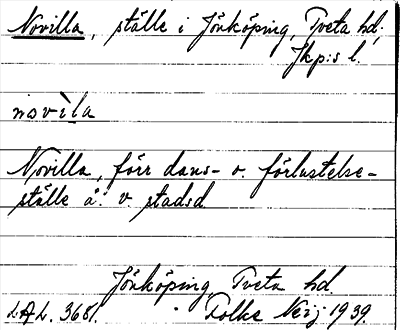 Novilla, ställe i Jönköping, Tveta hd,
Jkp:s l.
novìla
Novilla, förr dans- o. förlustelse-
ställe å v. stadsd
Jönköping, Tveta hd
LAL. 3681. Folke Neij 1939.